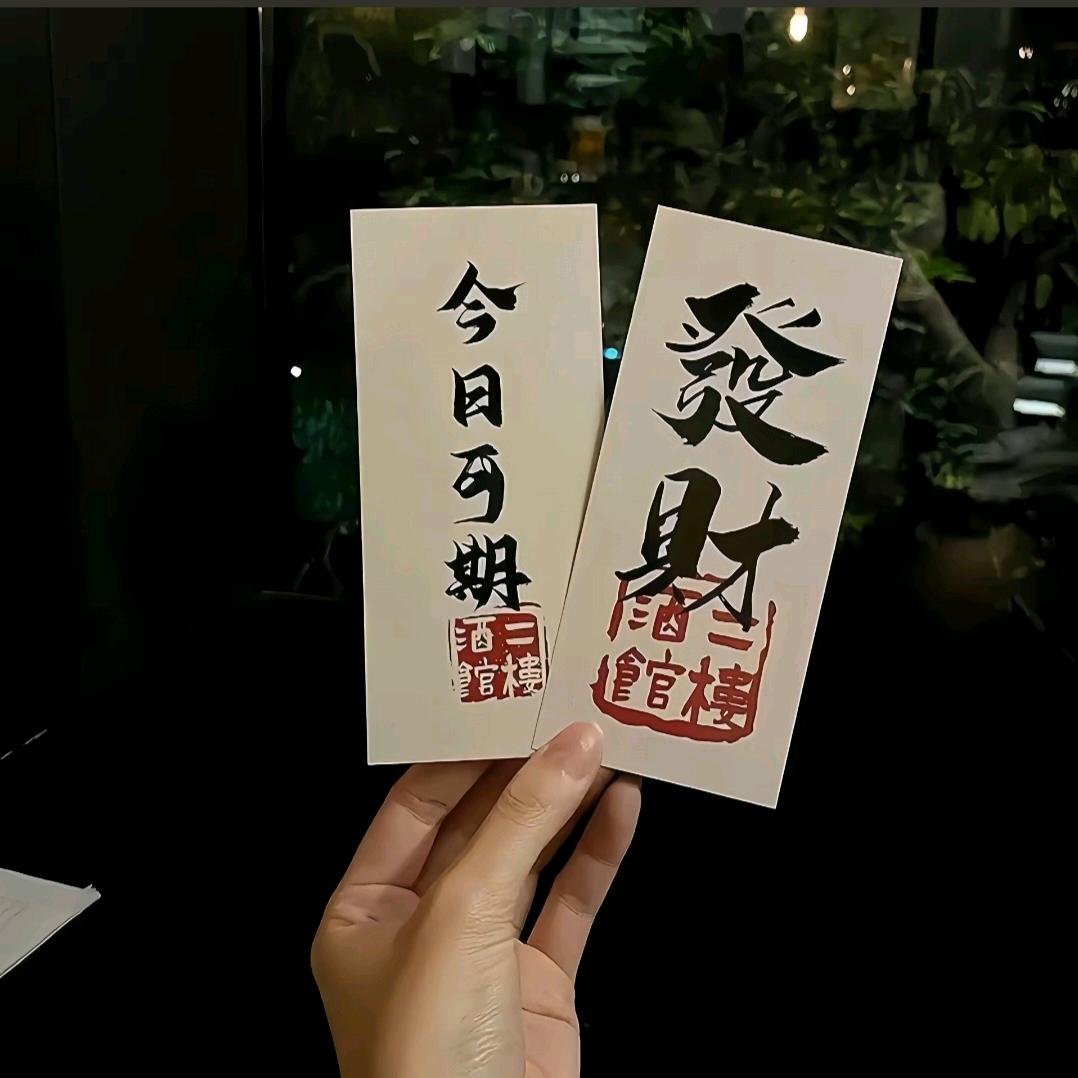 今日可期
二樓酒館
發財
二樓酒館